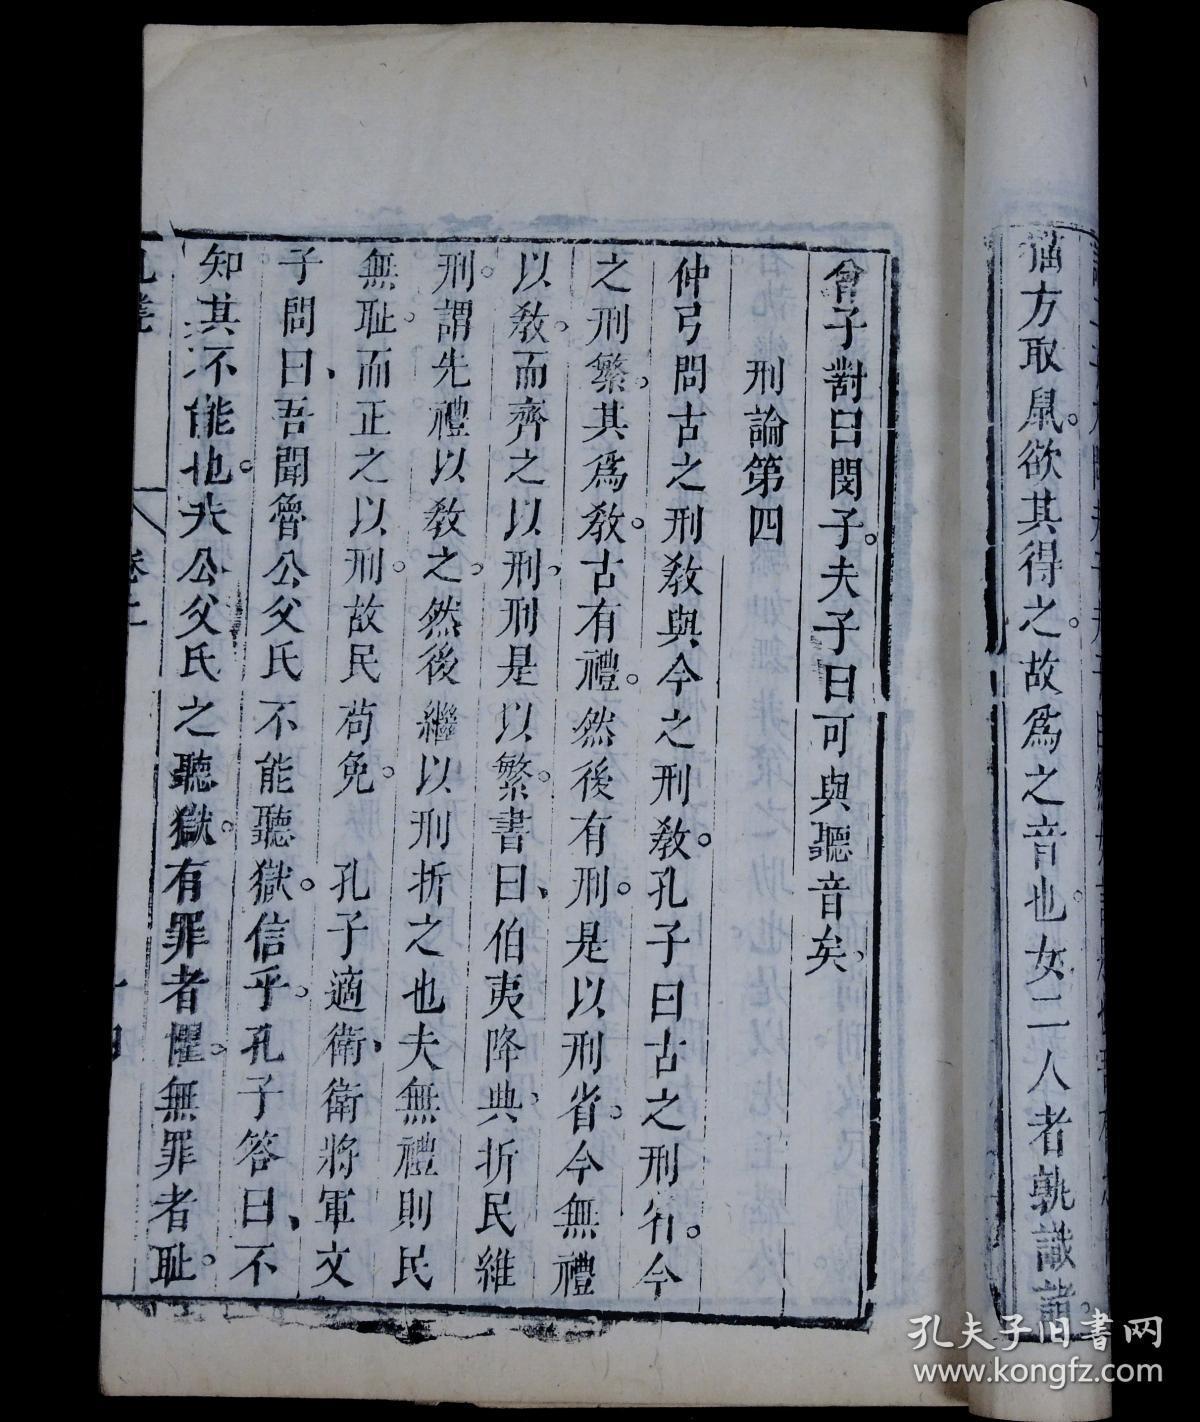 猫方取鼠。欲其得之。故爲之音也。女二人者孰識諸。
曾子對曰閔子。夫子曰可與聽音矣、
刑論第四
仲弓問古之刑敎與今之刑敎。孔子曰古之刑省。今
之刑繁。其爲敎。古有禮。然後有刑。是以刑省。今無禮
以敎而齊之以刑、刑是以繁。書曰、伯夷降典、折民維
刑。謂先禮以敎之。然後繼以刑折之也夫無禮則民
無耻。而正之以刑。故民苟免。 孔子適衛、衛將軍文
子問曰、吾聞魯公父氏不能聽獄。信乎。孔子答曰、不
知其不能也。夫公父氏之聽獄。有罪者懼。無罪者耻。
卷上
十四
孔夫子旧書网
www.kongfz.com